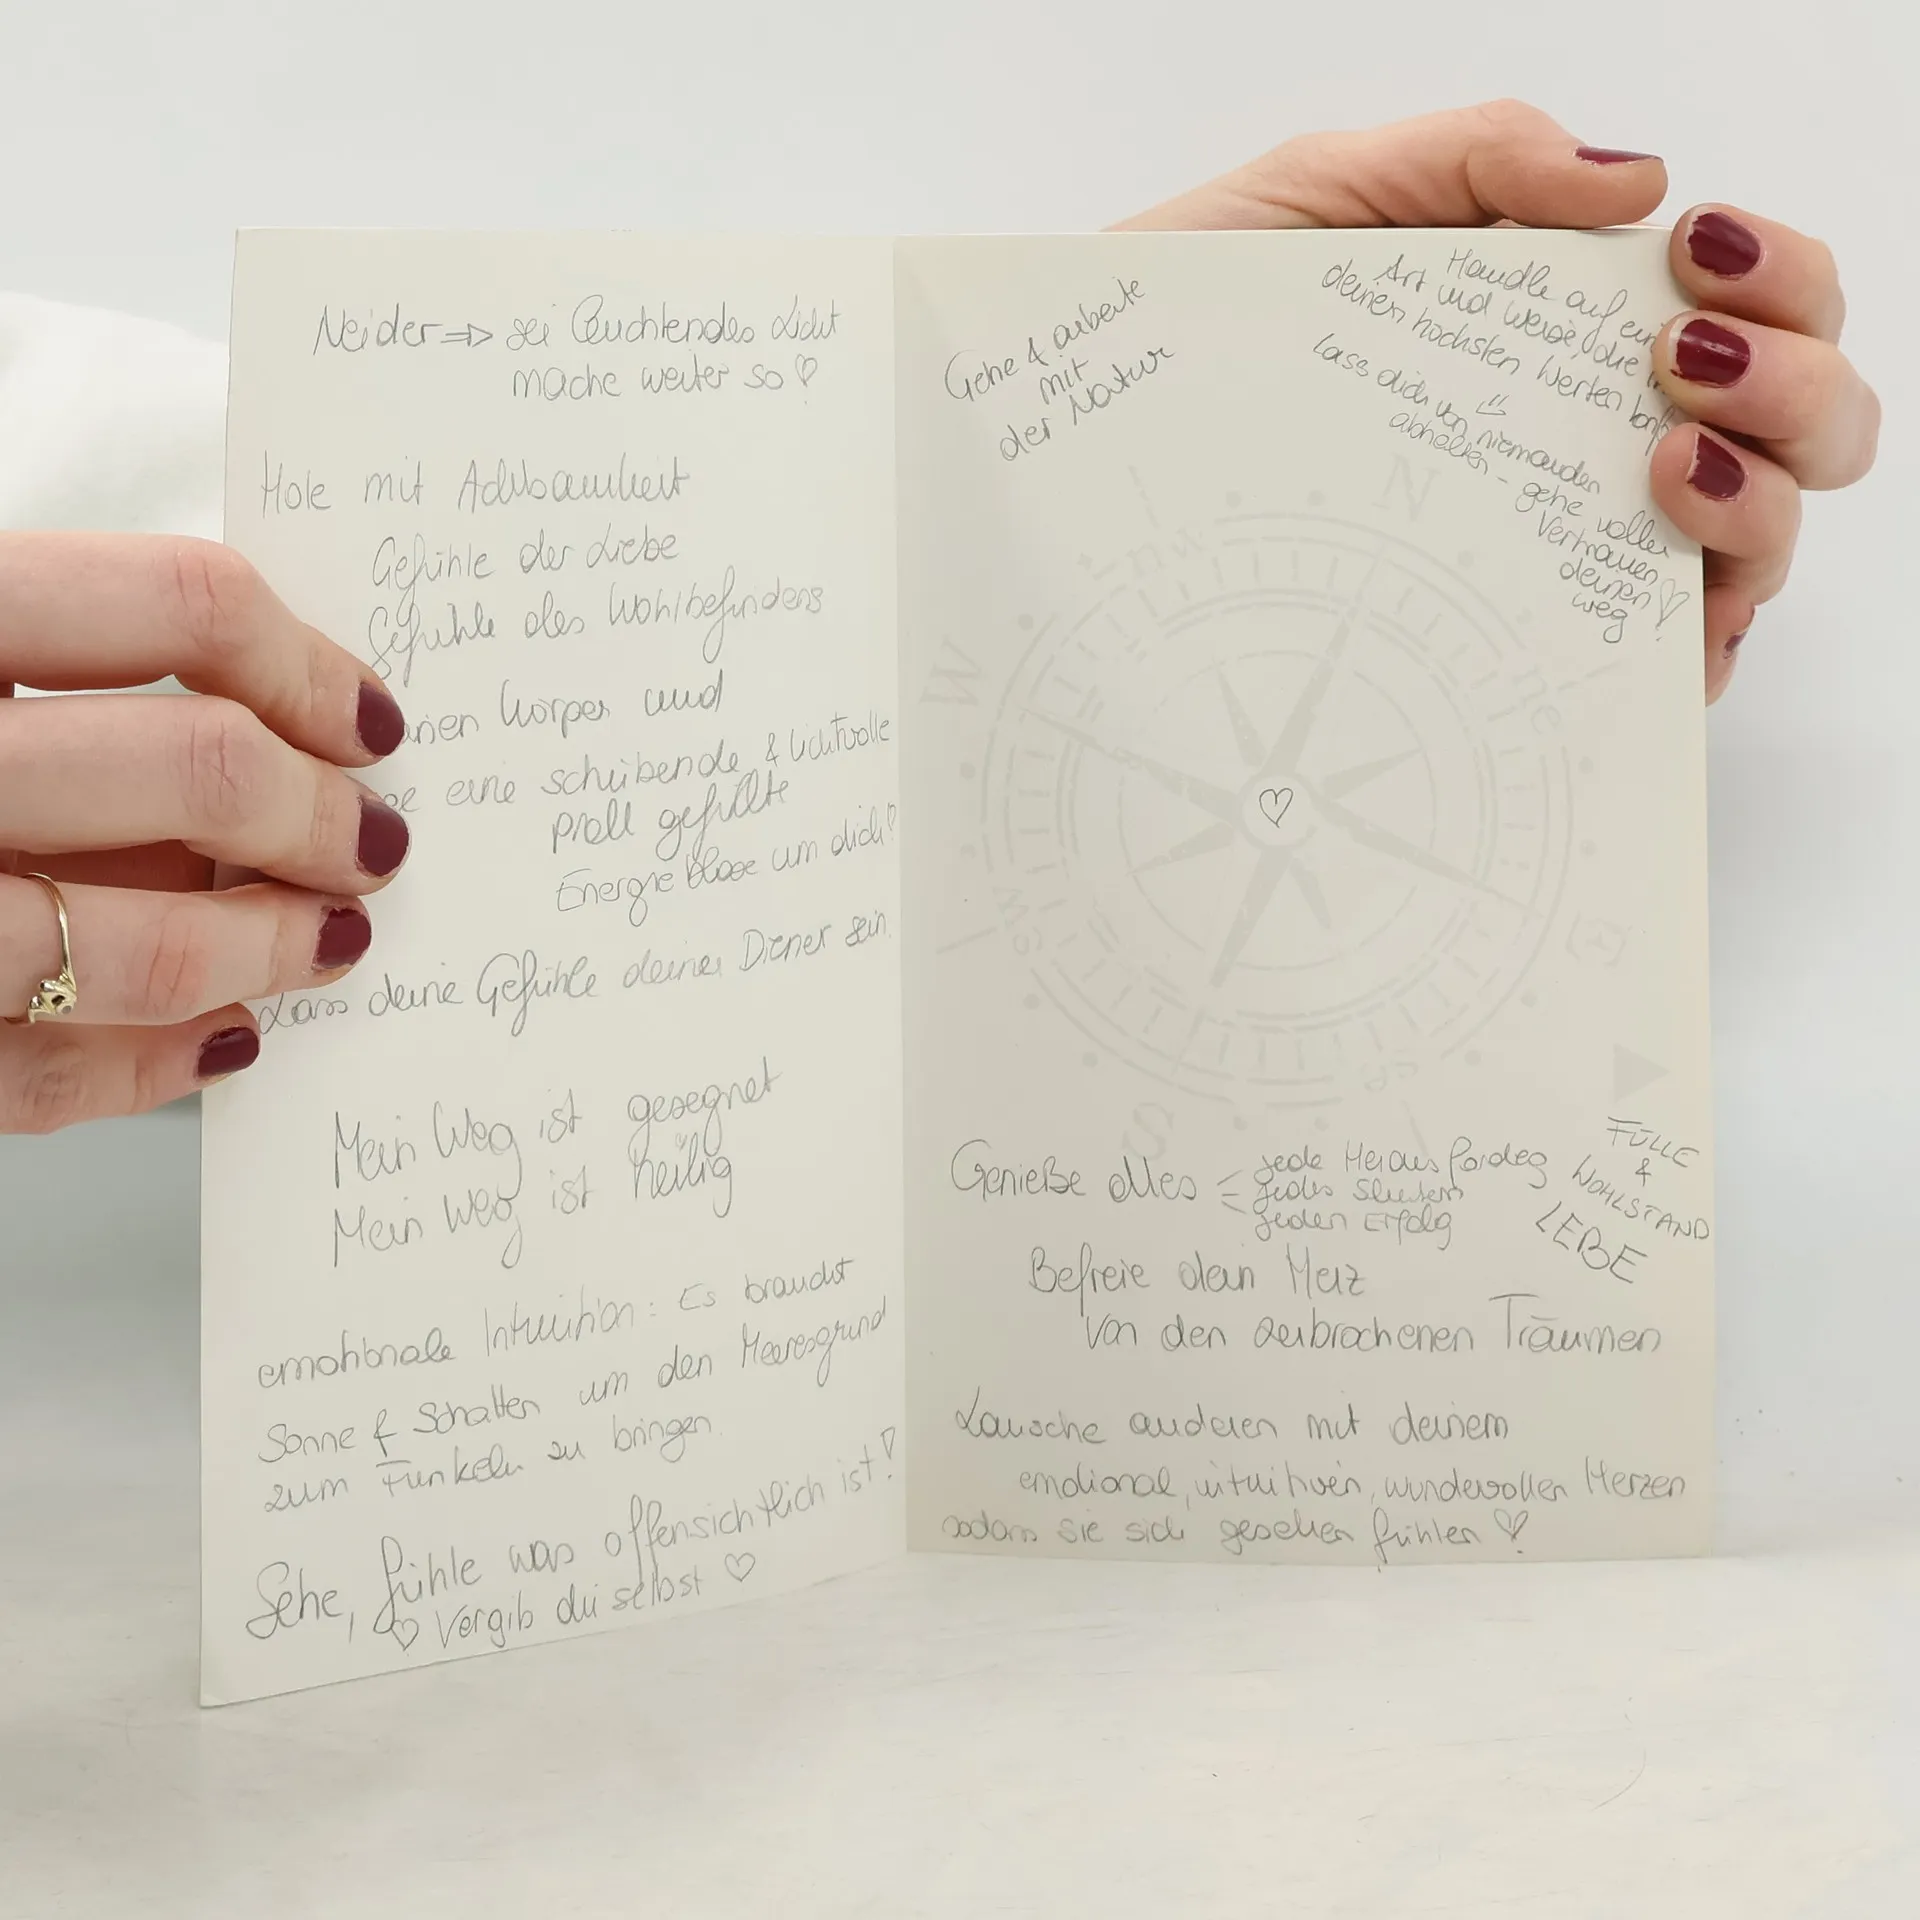 Neider => sei leuchtendes Licht
mache weiter so ♡
Hole mit Achtsamkeit
Gefühle der Liebe
Gefühle des Wohlbefindens
Körper und
eine & lichtvolle
prall gefüllte
Energie blase um dich!
Lass deine Gefühle deine Diener sein.
Mein Weg ist gesegnet
Mein Weg ist heilig
emotionale Intuition: Es braucht
Sonne & Schatten um den Meeresgrund
zum Funkeln zu bringen.
Sehe, fühle was offensichtlich ist!
♡ Vergib dir selbst ♡
Gehe & arbeite
mit
der Natur
Handle auf
Art und Weise, die
deinen höchsten Werten
Lass dich von niemanden
abhalten - gehe voller
Vertrauen
deinen ♡
weg !
N
ne
W
♡
S
Genieße Alles = jede
jedes
jeden Erfolg
FÜLLE
&
WOHLSTAND
LEBE
Befreie dein Herz
von den zerbrochenen Träumen
Lausche anderen mit deinem
emotional, intuitiven, wundervollen Herzen
sodass sie sich gesehen fühlen ♡